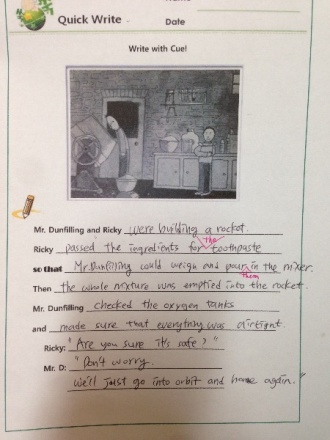 Name
Quick Write
Date
Write with Cue!
Mr. Dunfilling and Ricky were building a rocket.
the
Ricky passed the ingredients for toothpaste
so that Mr. Dunfilling could weigh and pour in the mixer.
them
Then the whole mixture was emptied into the rocket.
Mr. Dunfilling checked the oxygen tanks
and made sure that everything was airtight.
Ricky: "Are you sure it's safe?"
Mr. D: "Don't worry.
We'll just go into orbit and home again."